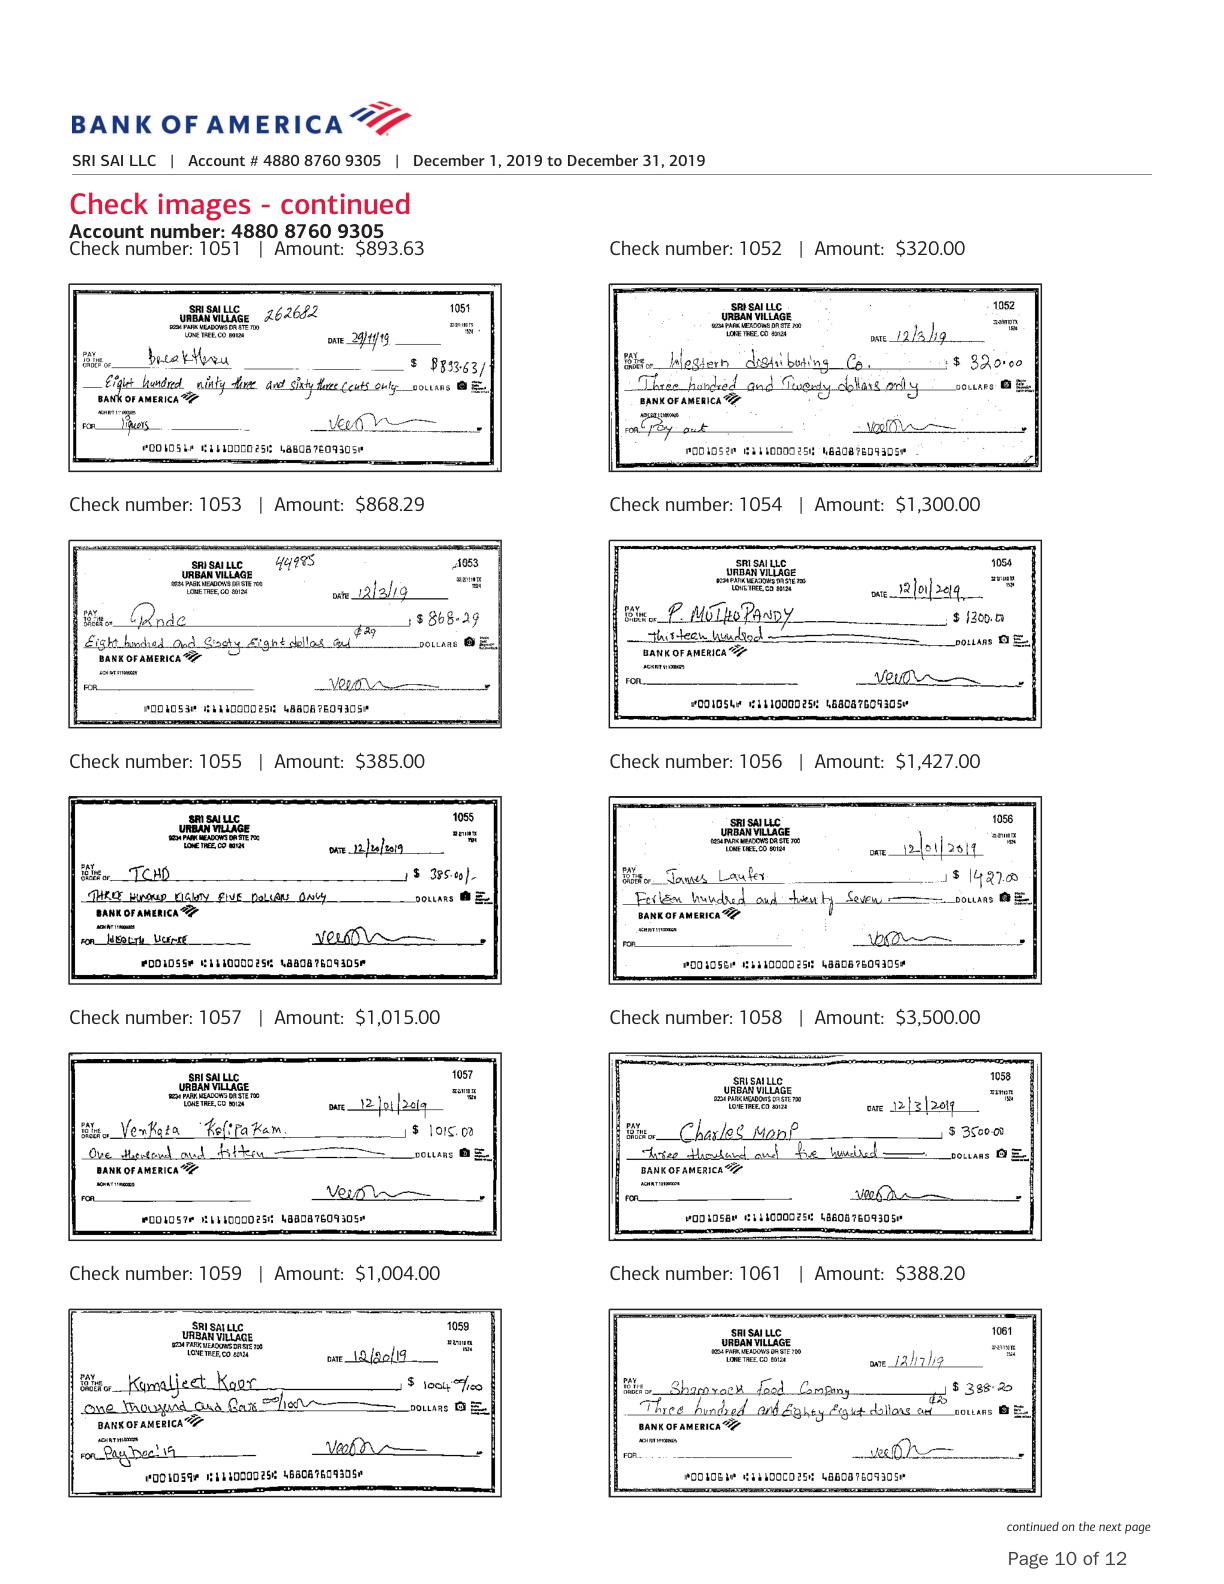 BANK OF AMERICA
SRI SAI LLC | Account # 4880 8760 9305 | December 1, 2019 to December 31, 2019
Check images - continued
Account number: 4880 8760 9305
Check number: 1051 | Amount: $893.63
SRI SAI LLC 262682 1051
URBAN VILLAGE
9234 PARK MEADOWS DR STE 700
LONE TREE, CO 80124
DATE 29/11/19
PAY TO THE ORDER OF $ $893.63/
Eight hundred ninty three and sixty three cents only DOLLARS
BANK OF AMERICA
ACH R/T 111000025
FOR liquors
⑈001051⑈ ⑆111000025⑆ 488087609305⑈
Check number: 1052 | Amount: $320.00
SRI SAI LLC 1052
URBAN VILLAGE
9234 PARK MEADOWS DR STE 700
LONE TREE, CO 80124
DATE 12/3/19
PAY TO THE ORDER OF Western distributing Co. $ 320.00
Three hundred and Twenty dollars only DOLLARS
BANK OF AMERICA
ACH R/T 111000025
FOR Pay out
⑈001052⑈ ⑆111000025⑆ 488087609305⑈
Check number: 1053 | Amount: $868.29
SRI SAI LLC 44985 1053
URBAN VILLAGE
9234 PARK MEADOWS DR STE 700
LONE TREE, CO 80124
DATE 12/3/19
PAY TO THE ORDER OF Rndc $ 868.29
Eight hundred and Sixty Eight dollars and ¢29 DOLLARS
BANK OF AMERICA
ACH R/T 111000025
FOR
⑈001053⑈ ⑆111000025⑆ 488087609305⑈
Check number: 1054 | Amount: $1,300.00
SRI SAI LLC 1054
URBAN VILLAGE
9234 PARK MEADOWS DR STE 700
LONE TREE, CO 80124
DATE 12/01/2019
PAY TO THE ORDER OF P. MUTHOPANDY $ 1300.00
Thirteen hundred DOLLARS
BANK OF AMERICA
ACH R/T 111000025
FOR
⑈001054⑈ ⑆111000025⑆ 488087609305⑈
Check number: 1055 | Amount: $385.00
SRI SAI LLC 1055
URBAN VILLAGE
9234 PARK MEADOWS DR STE 700
LONE TREE, CO 80124
DATE 12/20/2019
PAY TO THE ORDER OF TCHD $ 385.00/-
THREE HUNDRED EIGHTY FIVE DOLLARS ONLY DOLLARS
BANK OF AMERICA
ACH R/T 111000025
FOR HEALTH LICENSE
⑈001055⑈ ⑆111000025⑆ 488087609305⑈
Check number: 1056 | Amount: $1,427.00
SRI SAI LLC 1056
URBAN VILLAGE
9234 PARK MEADOWS DR STE 700
LONE TREE, CO 80124
DATE 12/01/2019
PAY TO THE ORDER OF James Laufer $ 1427.00
Forteen hundred and twenty Seven DOLLARS
BANK OF AMERICA
ACH R/T 111000025
FOR
⑈001056⑈ ⑆111000025⑆ 488087609305⑈
Check number: 1057 | Amount: $1,015.00
SRI SAI LLC 1057
URBAN VILLAGE
9234 PARK MEADOWS DR STE 700
LONE TREE, CO 80124
DATE 12/01/2019
PAY TO THE ORDER OF Venkata $ 1015.00
One thousand and fifteen DOLLARS
BANK OF AMERICA
ACH R/T 111000025
FOR
⑈001057⑈ ⑆111000025⑆ 488087609305⑈
Check number: 1058 | Amount: $3,500.00
SRI SAI LLC 1058
URBAN VILLAGE
9234 PARK MEADOWS DR STE 700
LONE TREE, CO 80124
DATE 12/3/2019
PAY TO THE ORDER OF Charles $ 3500.00
Three thousand and five hundred DOLLARS
BANK OF AMERICA
ACH R/T 111000025
FOR
⑈001058⑈ ⑆111000025⑆ 488087609305⑈
Check number: 1059 | Amount: $1,004.00
SRI SAI LLC 1059
URBAN VILLAGE
9234 PARK MEADOWS DR STE 700
LONE TREE, CO 80124
DATE 12/20/19
PAY TO THE ORDER OF Kamaljeet Kaor $ 1004 00/100
One thousand and four 00/100 DOLLARS
BANK OF AMERICA
ACH R/T 111000025
FOR Pay Dec'19
⑈001059⑈ ⑆111000025⑆ 488087609305⑈
Check number: 1061 | Amount: $388.20
SRI SAI LLC 1061
URBAN VILLAGE
9234 PARK MEADOWS DR STE 700
LONE TREE, CO 80124
DATE 12/17/19
PAY TO THE ORDER OF Shamrock Food Company $ 388.20
Three hundred and Eighty Eight dollars and ¢20 DOLLARS
BANK OF AMERICA
ACH R/T 111000025
FOR
⑈001061⑈ ⑆111000025⑆ 488087609305⑈
continued on the next page
Page 10 of 12